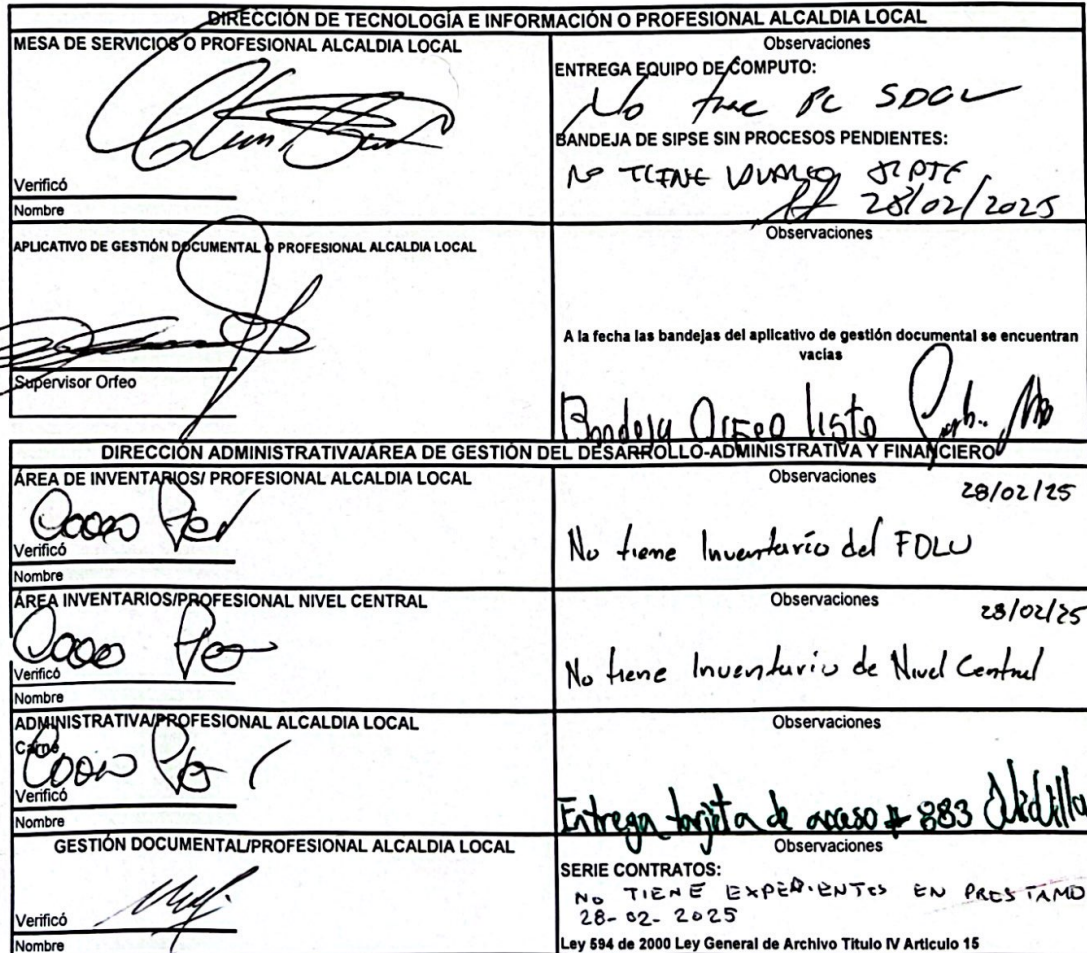 DIRECCIÓN DE TECNOLOGÍA E INFORMACIÓN O PROFESIONAL ALCALDIA LOCAL
MESA DE SERVICIOS O PROFESIONAL ALCALDIA LOCAL
Verificó
Nombre
Observaciones
ENTREGA EQUIPO DE COMPUTO:
No PC
BANDEJA DE SIPSE SIN PROCESOS PENDIENTES:
No TIENE
28/02/2025
APLICATIVO DE GESTIÓN DOCUMENTAL O PROFESIONAL ALCALDIA LOCAL
Supervisor Orfeo
Observaciones
A la fecha las bandejas del aplicativo de gestión documental se encuentran
vacías
Bandeja Orfeo lista
DIRECCIÓN ADMINISTRATIVA/ÁREA DE GESTIÓN DEL DESARROLLO-ADMINISTRATIVA Y FINANCIERO
ÁREA DE INVENTARIOS/ PROFESIONAL ALCALDIA LOCAL
Verificó
Nombre
Observaciones
28/02/25
No tiene Inventario del FDLU
ÁREA INVENTARIOS/PROFESIONAL NIVEL CENTRAL
Verificó
Nombre
Observaciones
28/02/25
No tiene Inventario de Nivel Central
ADMINISTRATIVA/PROFESIONAL ALCALDIA LOCAL
Carné
Verificó
Nombre
Observaciones
Entrega tarjeta de acceso # 883
GESTIÓN DOCUMENTAL/PROFESIONAL ALCALDIA LOCAL
Verificó
Nombre
Observaciones
SERIE CONTRATOS:
No TIENE EXPEDIENTES EN PRESTAMO
28-02-2025
Ley 594 de 2000 Ley General de Archivo Titulo IV Articulo 15